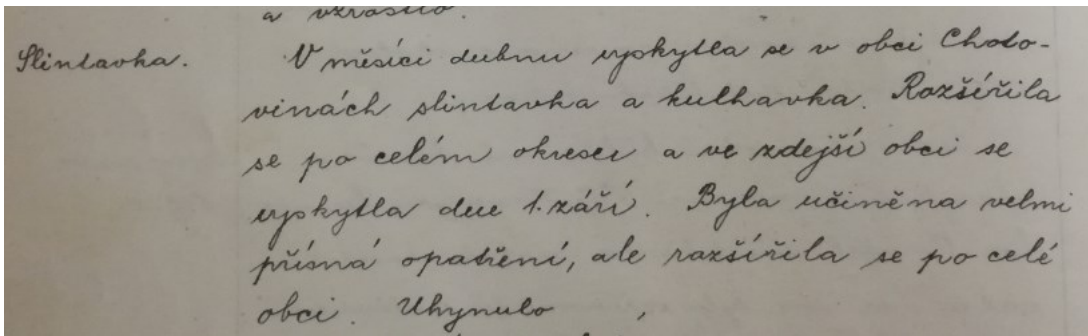 a vzrostlo.
Slintavka. V měsíci dubnu vyskytla se v obci Choto-
vinách slintavka a kulhavka. Rozšířila
se po celém okrese a ve zdejší obci se
vyskytla dne 1. září. Byla učiněna velmi
přísná opatření, ale rozšířila se po celé
obci. Uhynulo